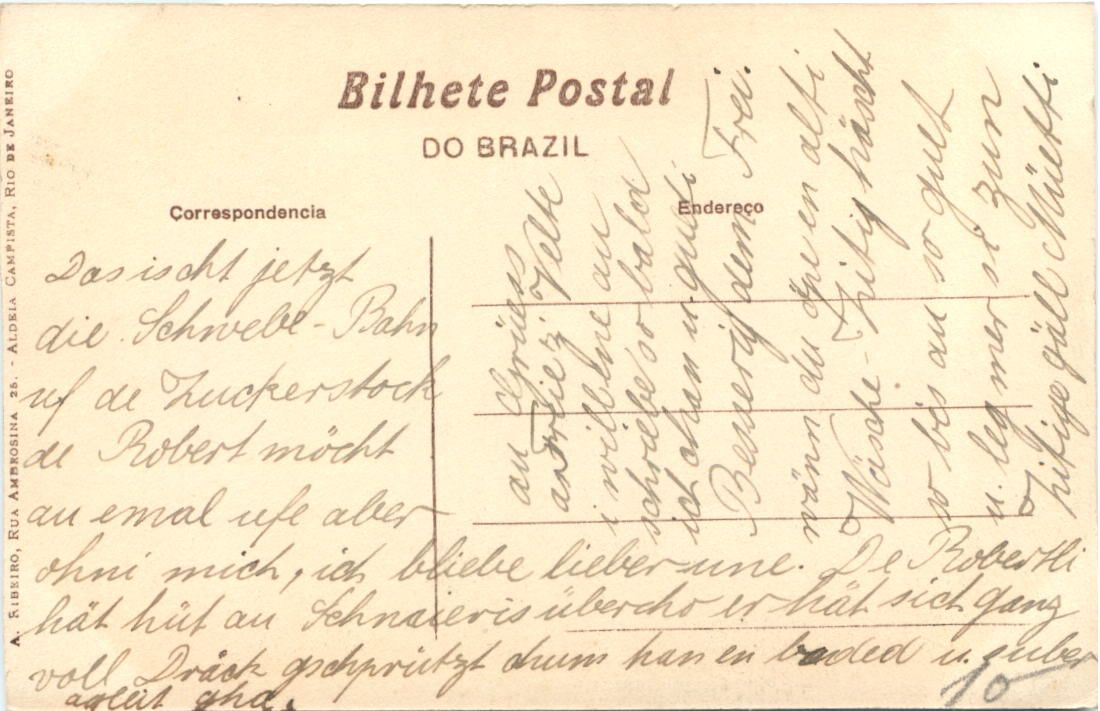 Bilhete Postal
DO BRAZIL
Correspondencia
Endereço
A. RIBEIRO, RUA AMBROSINA 25. - ALDEIA CAMPISTA, RIO DE JANEIRO
Das ischt jetzt
die Schwebe-Bahn
uf de Zuckerstock
de Robert möcht
au emal ufe aber
ohni mich, ich bliebe lieber une. De Robertli
hät hüt au Schnaieris übercho er hät sich ganz
voll Dräck gschprützt chum han en baded u. suber
agleit gha.
au Grües
a Velte
i will ne au
schriebe so bald
ich cham u. gueti
Besserig dem Frei.
wänn du öpen en alti
Wäsche-Zitig häscht
so bis au so guet
u. leg mer si zun
Zitige gäll Müetti
10